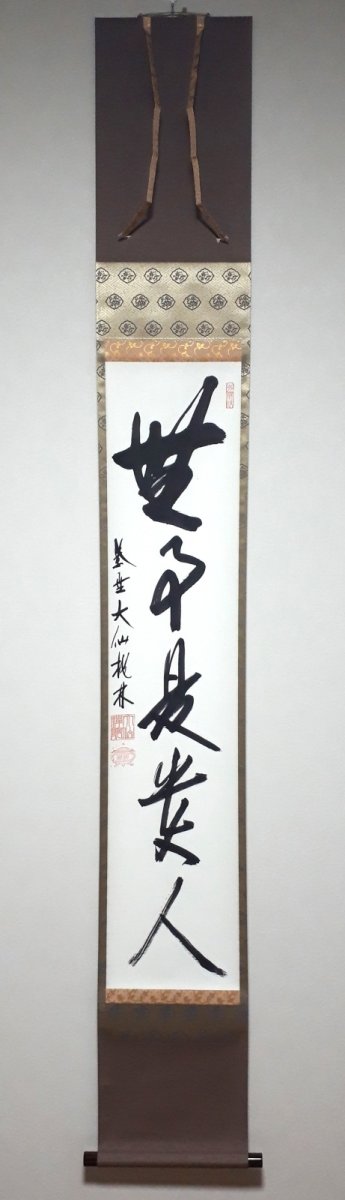 無事是貴人
世大仙桃林